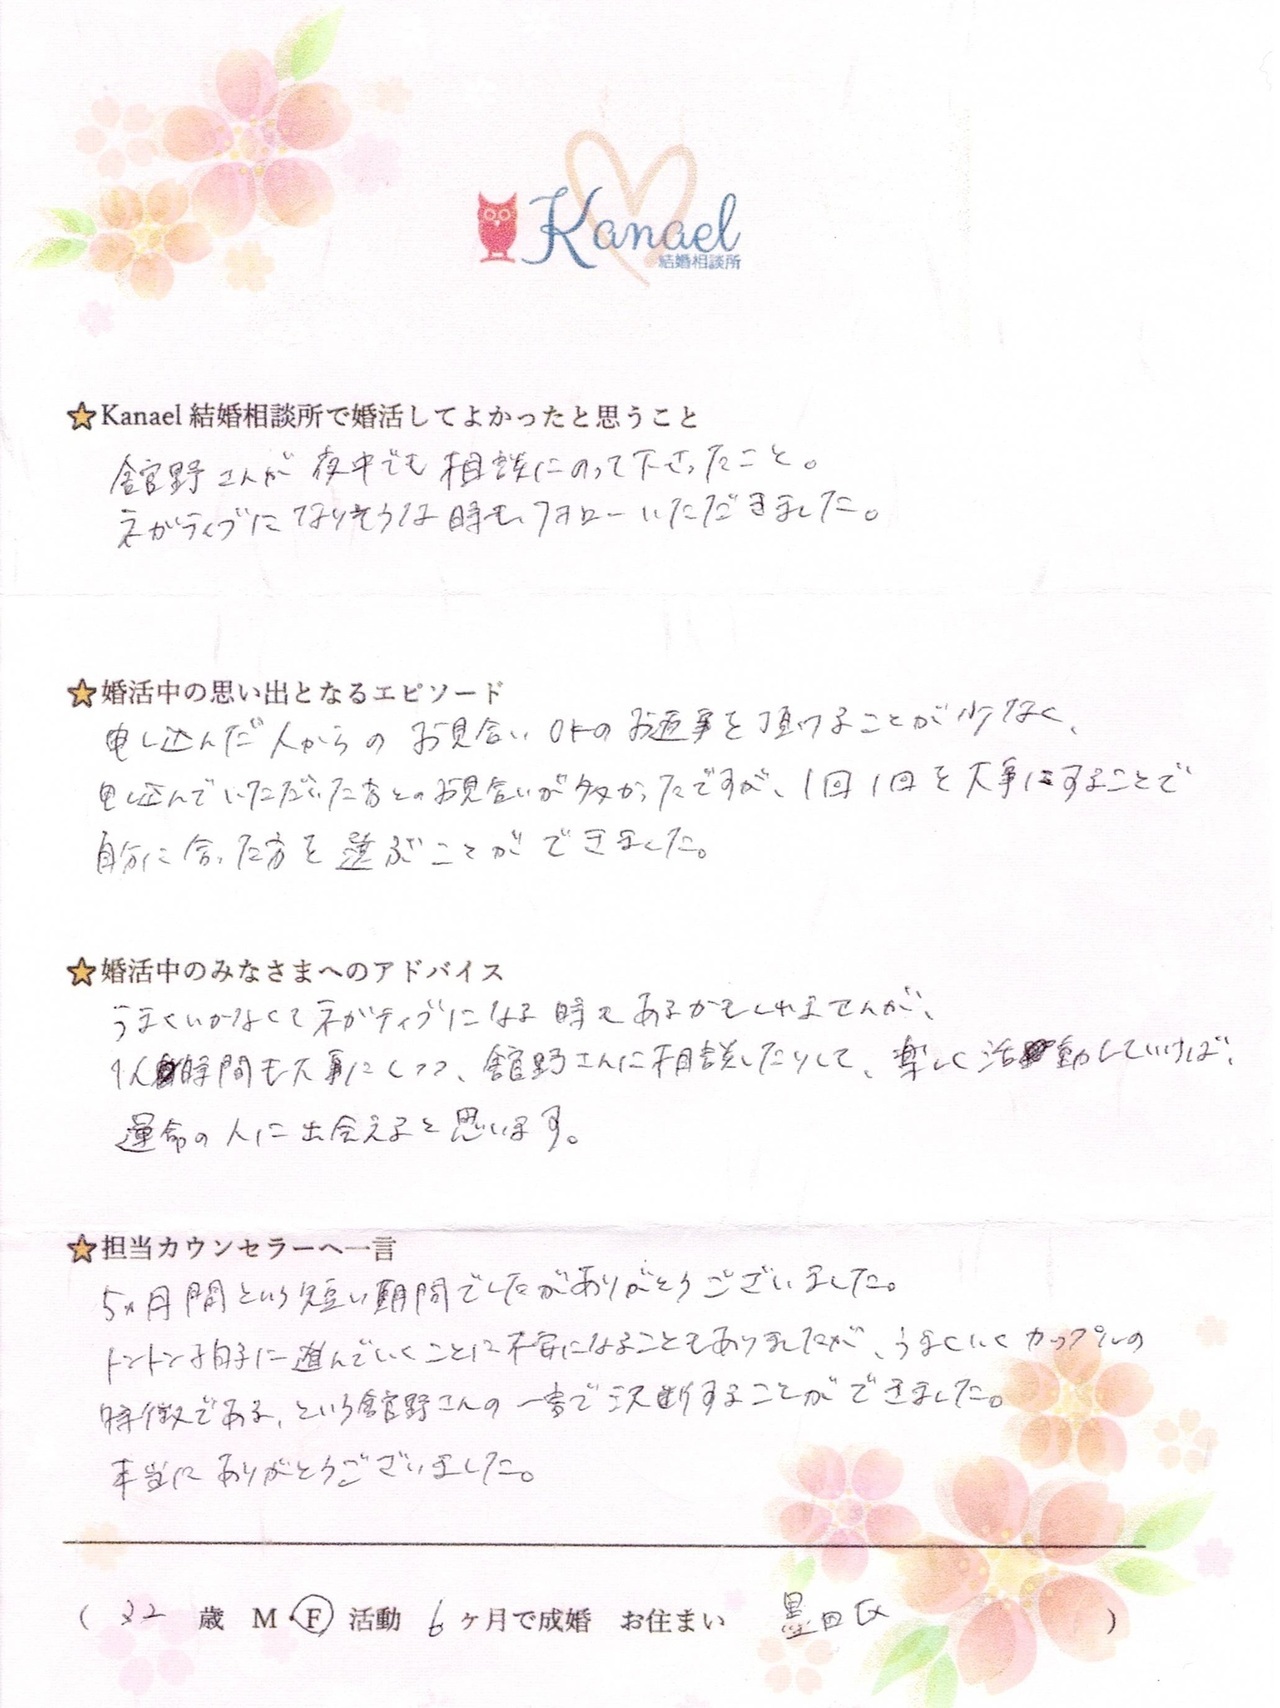 Kanael
結婚相談所
★Kanael 結婚相談所で婚活してよかったと思うこと
舘野さんが夜中でも相談にのって下さったこと。
ネガティブになりそうな時も、フォローいただきました。
★婚活中の思い出となるエピソード
申し込んだ人からのお見合いOKのお返事を頂けることが少なく、
申し込んでいただいた方とのお見合いが多かったですが、1回1回を大事にすることで
自分に合った方を選ぶことができました。
★婚活中のみなさまへのアドバイス
うまくいかなくてネガティブになる時もあるかもしれませんが、
1人時間も大事にしつつ、舘野さんに相談したりして、楽しく活動していけば、
運命の人に出会えると思います。
★担当カウンセラーへ一言
5ヶ月間という短い期間でしたがありがとうございました。
トントン拍子に進んでいくことに不安になることもありましたが、うまくいくカップルの
特徴である、という舘野さんの一言で決断することができました。
本当にありがとうございました。
( 32 歳 M・F 活動 6 ヶ月で成婚 お住まい 墨田区 )